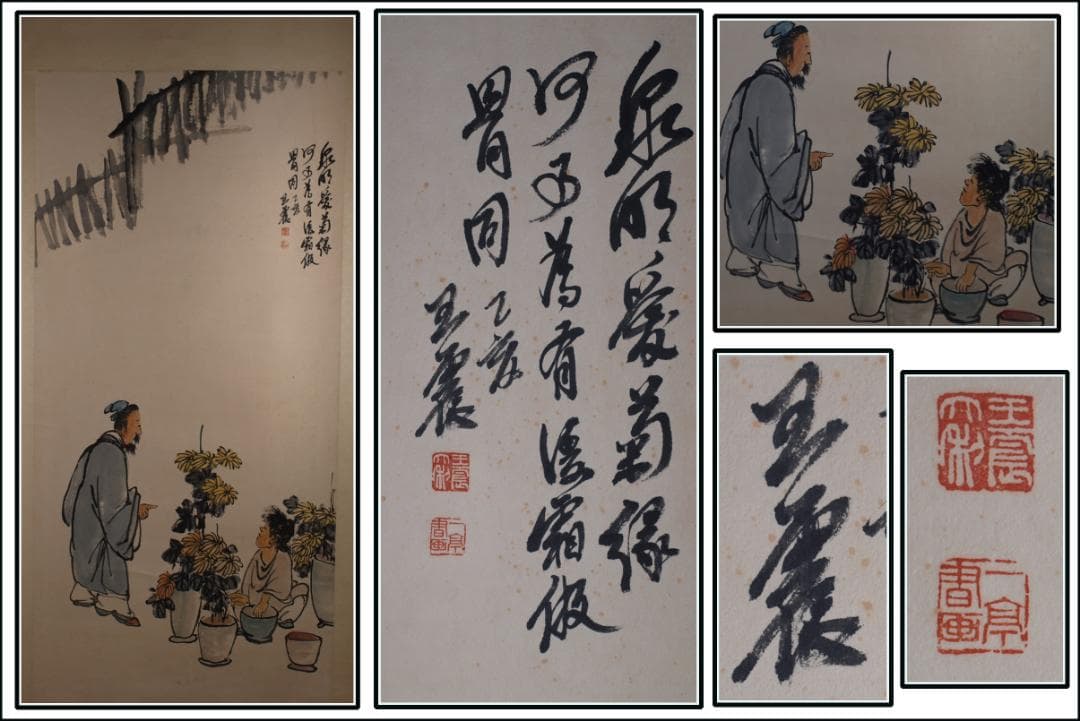 泉明愛菊緣
何事為有凌霜傲
骨同 乙亥
王震
王震大利
一亭書画